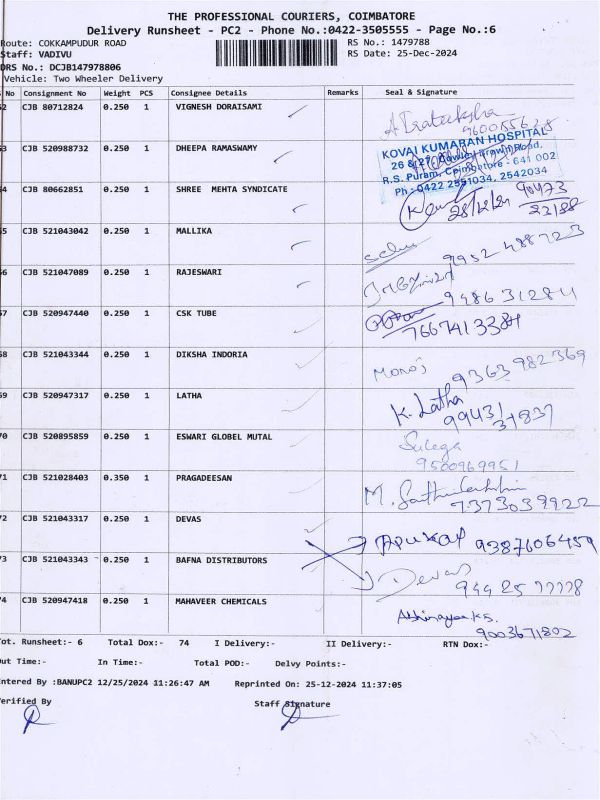 THE PROFESSIONAL COURIERS, COIMBATORE
Delivery Runsheet - PC2 - Phone No.:0422-3505555 - Page No.:6
Route: COKKAMPUDUR ROAD
RS No.: 1479788
Staff: VADIVU
RS Date: 25-Dec-2024
DRS No.: DCJB147978806
Vehicle: Two Wheeler Delivery
No Consignment No Weight PCS Consignee Details Remarks Seal & Signature
2 CJB 80712824 0.250 1 VIGNESH DORAISAMI
3 CJB 520988732 0.250 1 DHEEPA RAMASWAMY
KOVAI KUMARAN HOSPITAL
R.S. Puram, Coimbatore - 641 002
Ph : 0422 2551034, 2542034
4 CJB 80662851 0.250 1 SHREE MEHTA SYNDICATE
28/12/24 90473
22188
5 CJB 521043042 0.250 1 MALLIKA
9952488723
6 CJB 521047089 0.250 1 RAJESWARI
9486312811
7 CJB 520947440 0.250 1 CSK TUBE
7667413384
8 CJB 521043344 0.250 1 DIKSHA INDORIA
Manoj 9363 982369
9 CJB 520947317 0.250 1 LATHA
K. Latha
99431
31837
70 CJB 520895859 0.250 1 ESWARI GLOBEL MUTAL
9500969951
71 CJB 521028403 0.350 1 PRAGADEESAN
7373039922
72 CJB 521043317 0.250 1 DEVAS
9387606459
73 CJB 521043343 0.250 1 BAFNA DISTRIBUTORS
Devas
944 25 77778
74 CJB 520947418 0.250 1 MAHAVEER CHEMICALS
Abhinayaa K.S.
9003671802
ot. Runsheet:- 6 Total Dox:- 74 I Delivery:- II Delivery:- RTN Dox:-
ut Time:- In Time:- Total POD:- Delvy Points:-
ntered By :BANUPC2 12/25/2024 11:26:47 AM Reprinted On: 25-12-2024 11:37:05
erified By Staff Signature